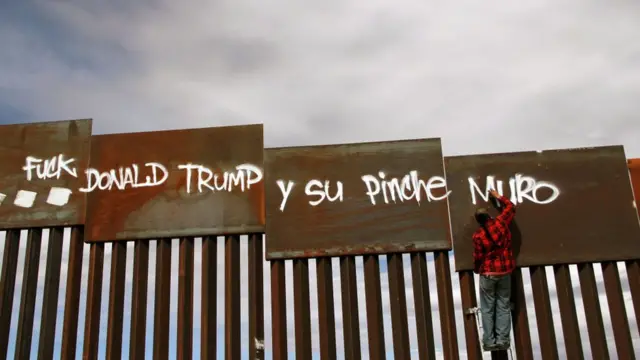 FUCK... DONALD TRUMP y su pinche MURO